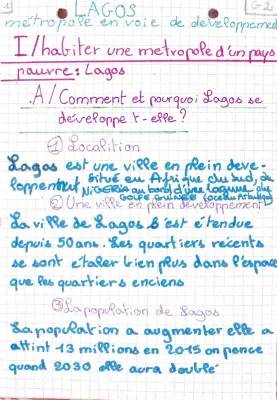 1
G2
LAGOS
métropole en voie de développement
I/habiter une metropole d'un pays
pauvre : Lagos
A/Comment et pourquoi Lagos se
développe t-elle ?
① Localition
Lagos est une ville en plein deve-
loppement, situé en Afrique du sud, au
NIGERIA au bord d'une lagune du
GOLFE GUINEE (océan Atlantique)
② Une ville en plein développement
La ville de Lagos s'est étendue
depuis 50 ans. Les quartiers recents
se sont etaler bien plus dans l'espace
que les quartiers enciens
③ La population de Lagos
La population a augmenter elle a
attint 13 millions en 2015 on pence
quand 2030 elle aura doublé